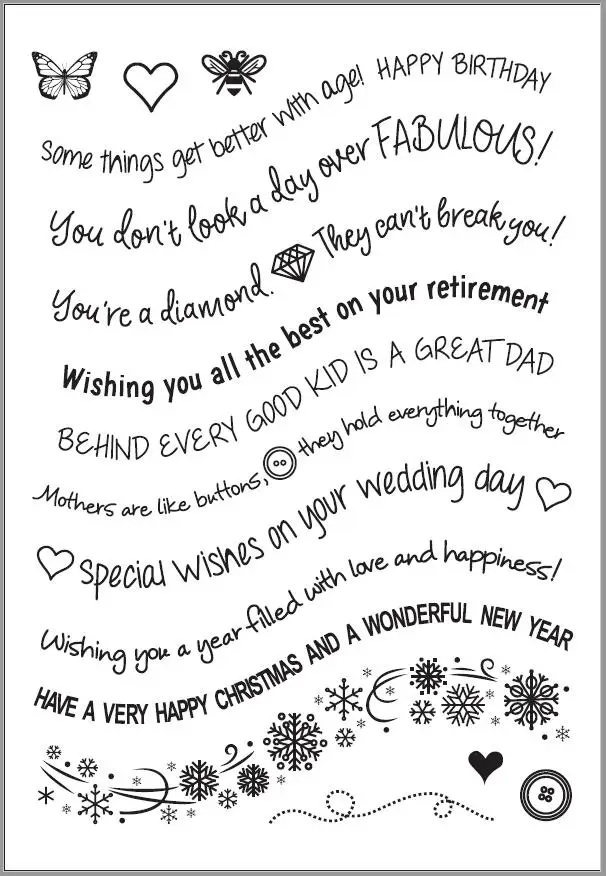 HAPPY BIRTHDAY
Some things get better with age!
You don't look a day over FABULOUS!
You're a diamond. They can't break you!
Wishing you all the best on your retirement
BEHIND EVERY GOOD KID IS A GREAT DAD
Mothers are like buttons, they hold everything together
Special wishes on your wedding day
Wishing you a year filled with love and happiness!
HAVE A VERY HAPPY CHRISTMAS AND A WONDERFUL NEW YEAR